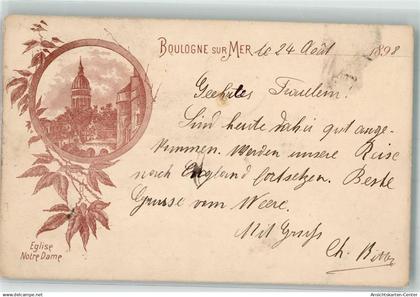 BOULOGNE SUR MER le 24 Août 1898
Geehrtes Fräulein!
Sind heute dahir gut ange-
kommen. Werden unsere Reise
nach England fortsetzen. Beste
Grüsse vom Meere.
Mit Gruss
Ch.
Eglise
Notre Dame